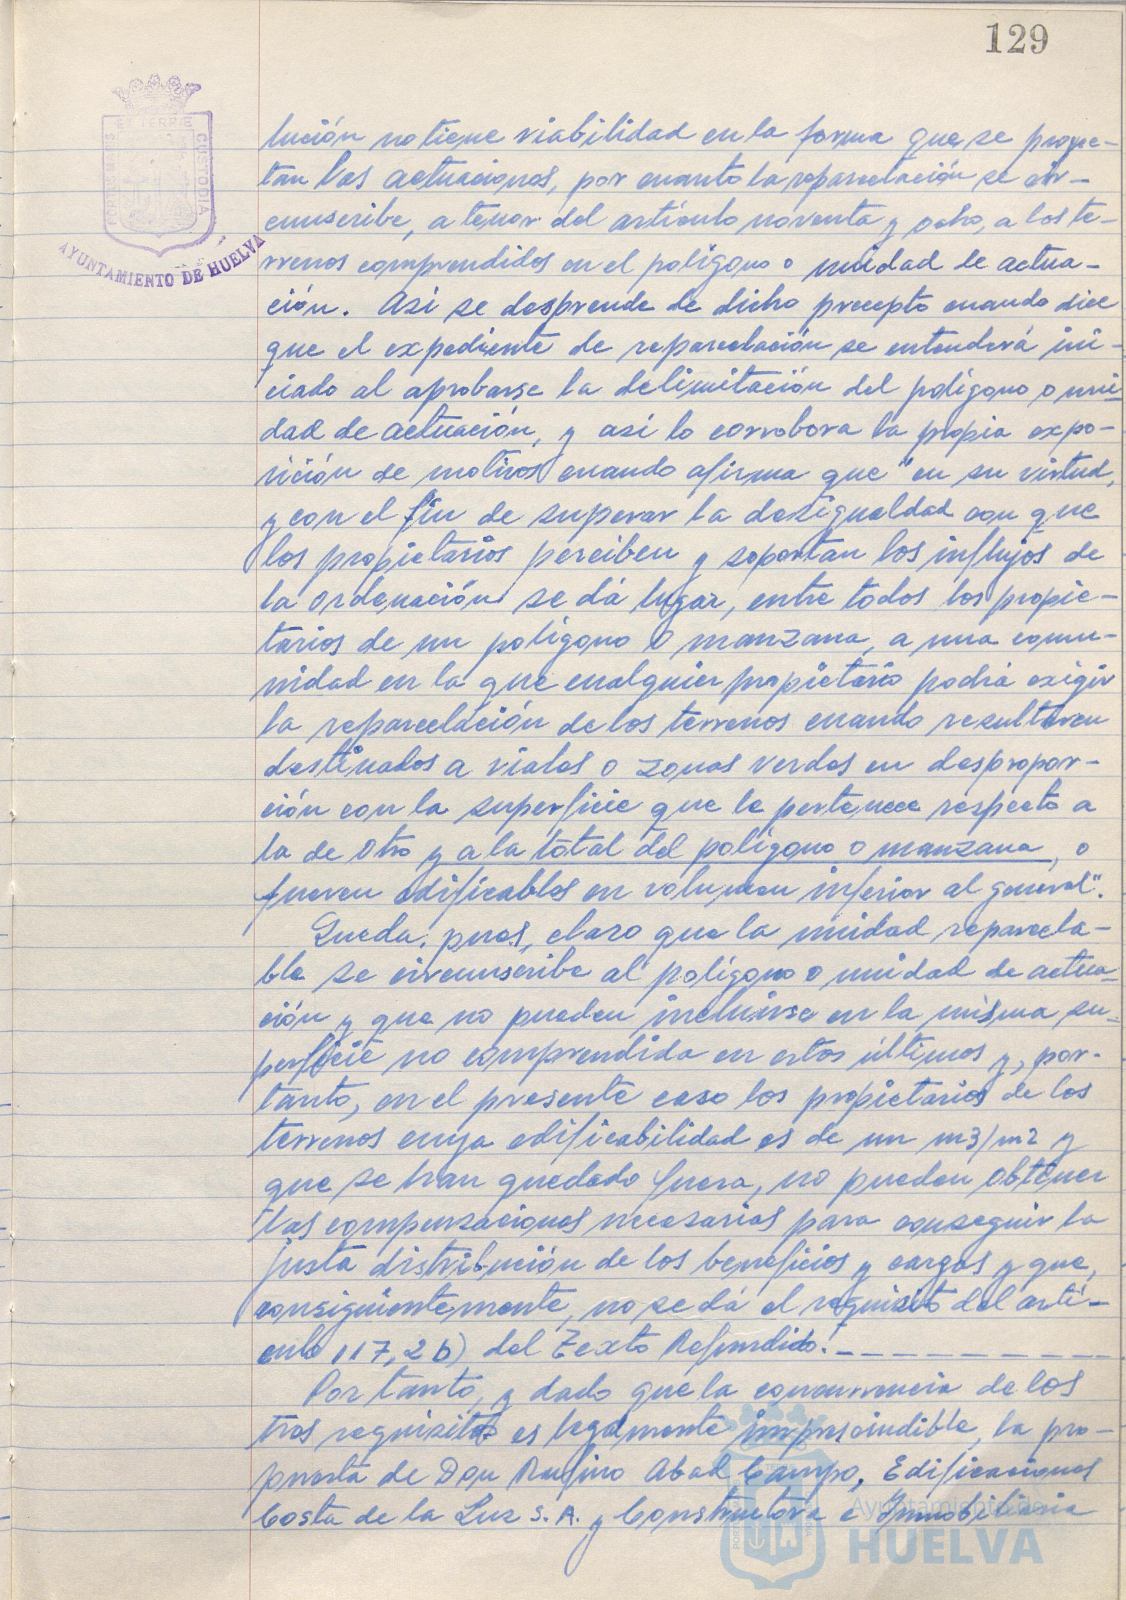 129
PORTUS MARIS
ET TERRE
CUSTODIA
AYUNTAMIENTO DE HUELVA
lución no tiene viabilidad en la forma que se proyec-
tan las actuaciones, por cuanto la reparcelación se cir-
cunscribe, a tenor del artículo noventa y ocho, a los te-
rrenos comprendidos en el polígono o unidad de actua-
ción. Así se desprende de dicho precepto cuando dice
que el expediente de reparcelación se entenderá ini-
ciado al aprobarse la delimitación del polígono o uni-
dad de actuación, y así lo corrobora la propia expo-
sición de motivos cuando afirma que "en su virtud,
y con el fin de superar la desigualdad con que
los propietarios perciben y soportan los influjos de
la Ordenación se dá lugar, entre todos los propie-
tarios de un polígono o manzana, a una comu-
nidad en la que cualquier propietario podrá exigir
la reparcelación de los terrenos cuando resultaren
destinados a viales o zonas verdes en despropor-
ción con la superficie que le pertenece respecto a
la de otro y a la total del polígono o manzana, o
fueren edificables en volumen inferior al general".
Queda, pues, claro que la unidad reparcela-
ble se circunscribe al polígono o unidad de actua-
ción y que no pueden incluirse en la misma su-
perficie no comprendida en estos últimos y, por-
tanto, en el presente caso los propietarios de los
terrenos cuya edificabilidad es de un m3/m2 y
que se han quedado fuera, no pueden obtener
las compensaciones necesarias para conseguir la
justa distribución de los beneficios y cargas y que,
consiguientemente, no se dá el requisito del artí-
culo 117, 2 b) del Texto Refundido.
Por tanto, y dado que la concurrencia de los
tres requisitos es legalmente imprescindible, la pro-
puesta de Don Rufino Abad Campo, Edificaciones
Costa de la Luz S. A. y Constructora e Inmobiliaria
Ayuntamiento de
HUELVA